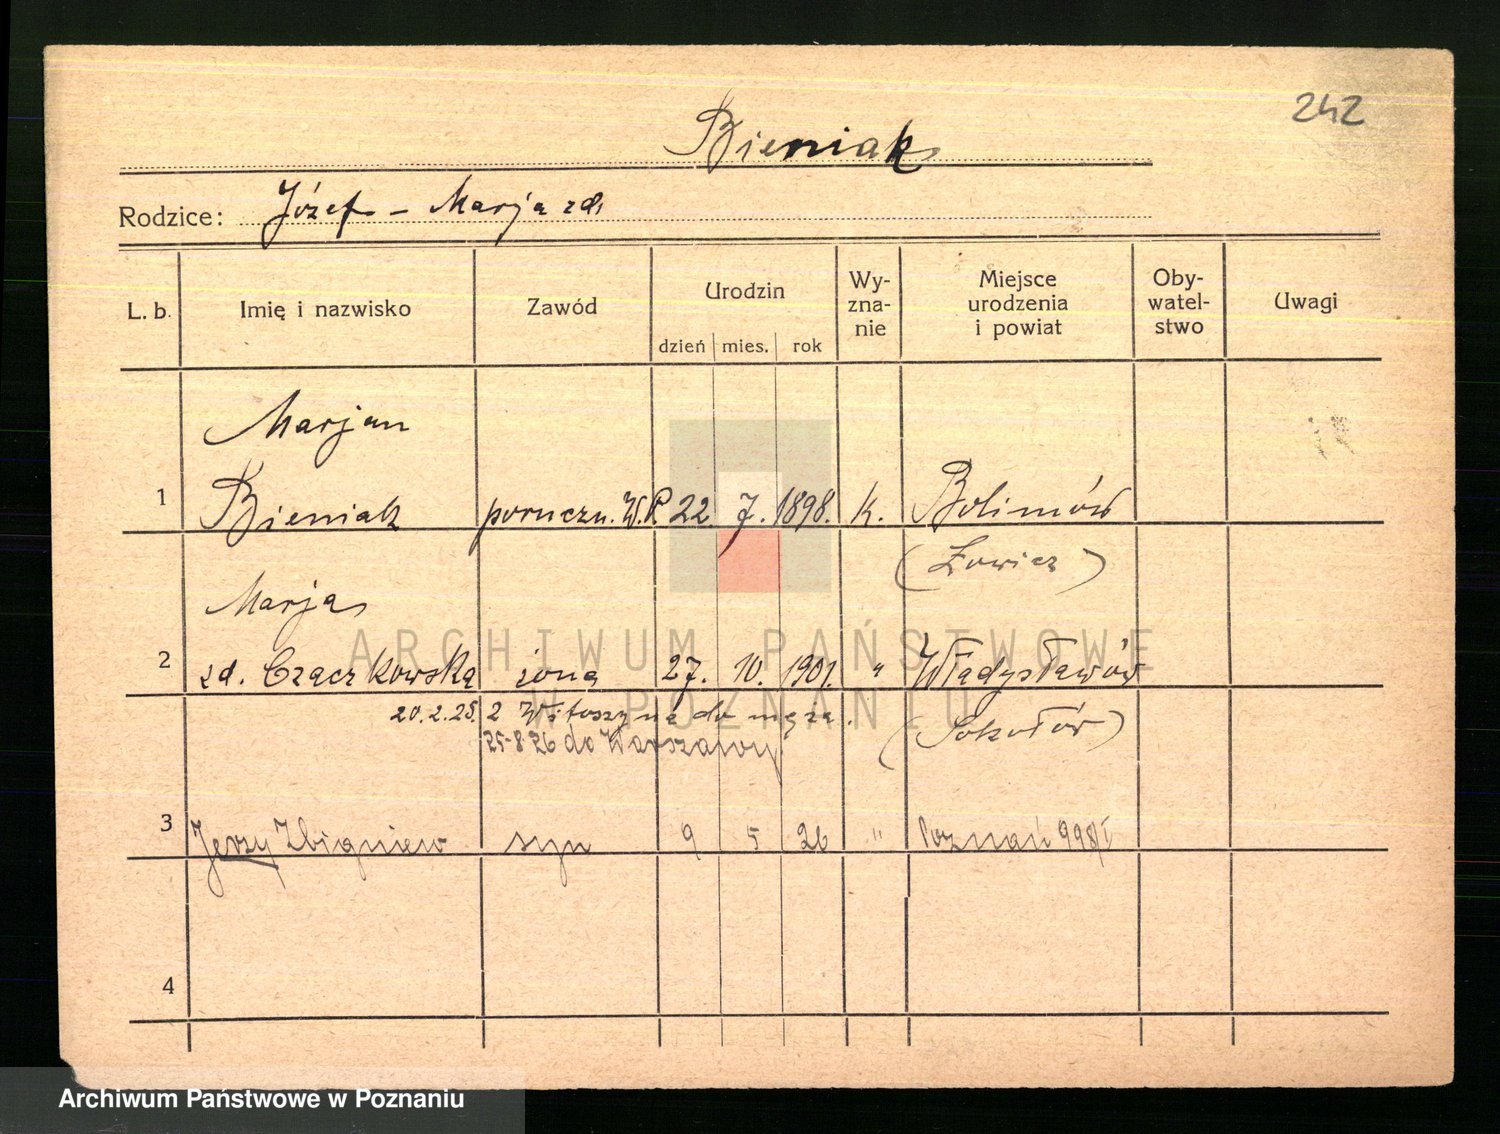 242
Bieniak
Rodzice: Józef - Marja zd.
L. b. Imię i nazwisko Zawód Urodzin dzień mies. rok Wy-zna-nie Miejsce urodzenia i powiat Oby-watel-stwo Uwagi
Marjan
1 Bieniak poruczn. W.P. 22. 7. 1898. k. Bolimów
(Łowicz)
Marja
2 zd. Czaczkowska żona 27. 10. 1901. " Władysławów
20.2.25. 2 do męża.
(Sokołów)
25-8 26 do Warszawy
3 Jerzy Zbigniew syn 9 5 26 " Poznań 998/I
4
ARCHIWUM PAŃSTWOWE
W POZNANIU
Archiwum Państwowe w Poznaniu